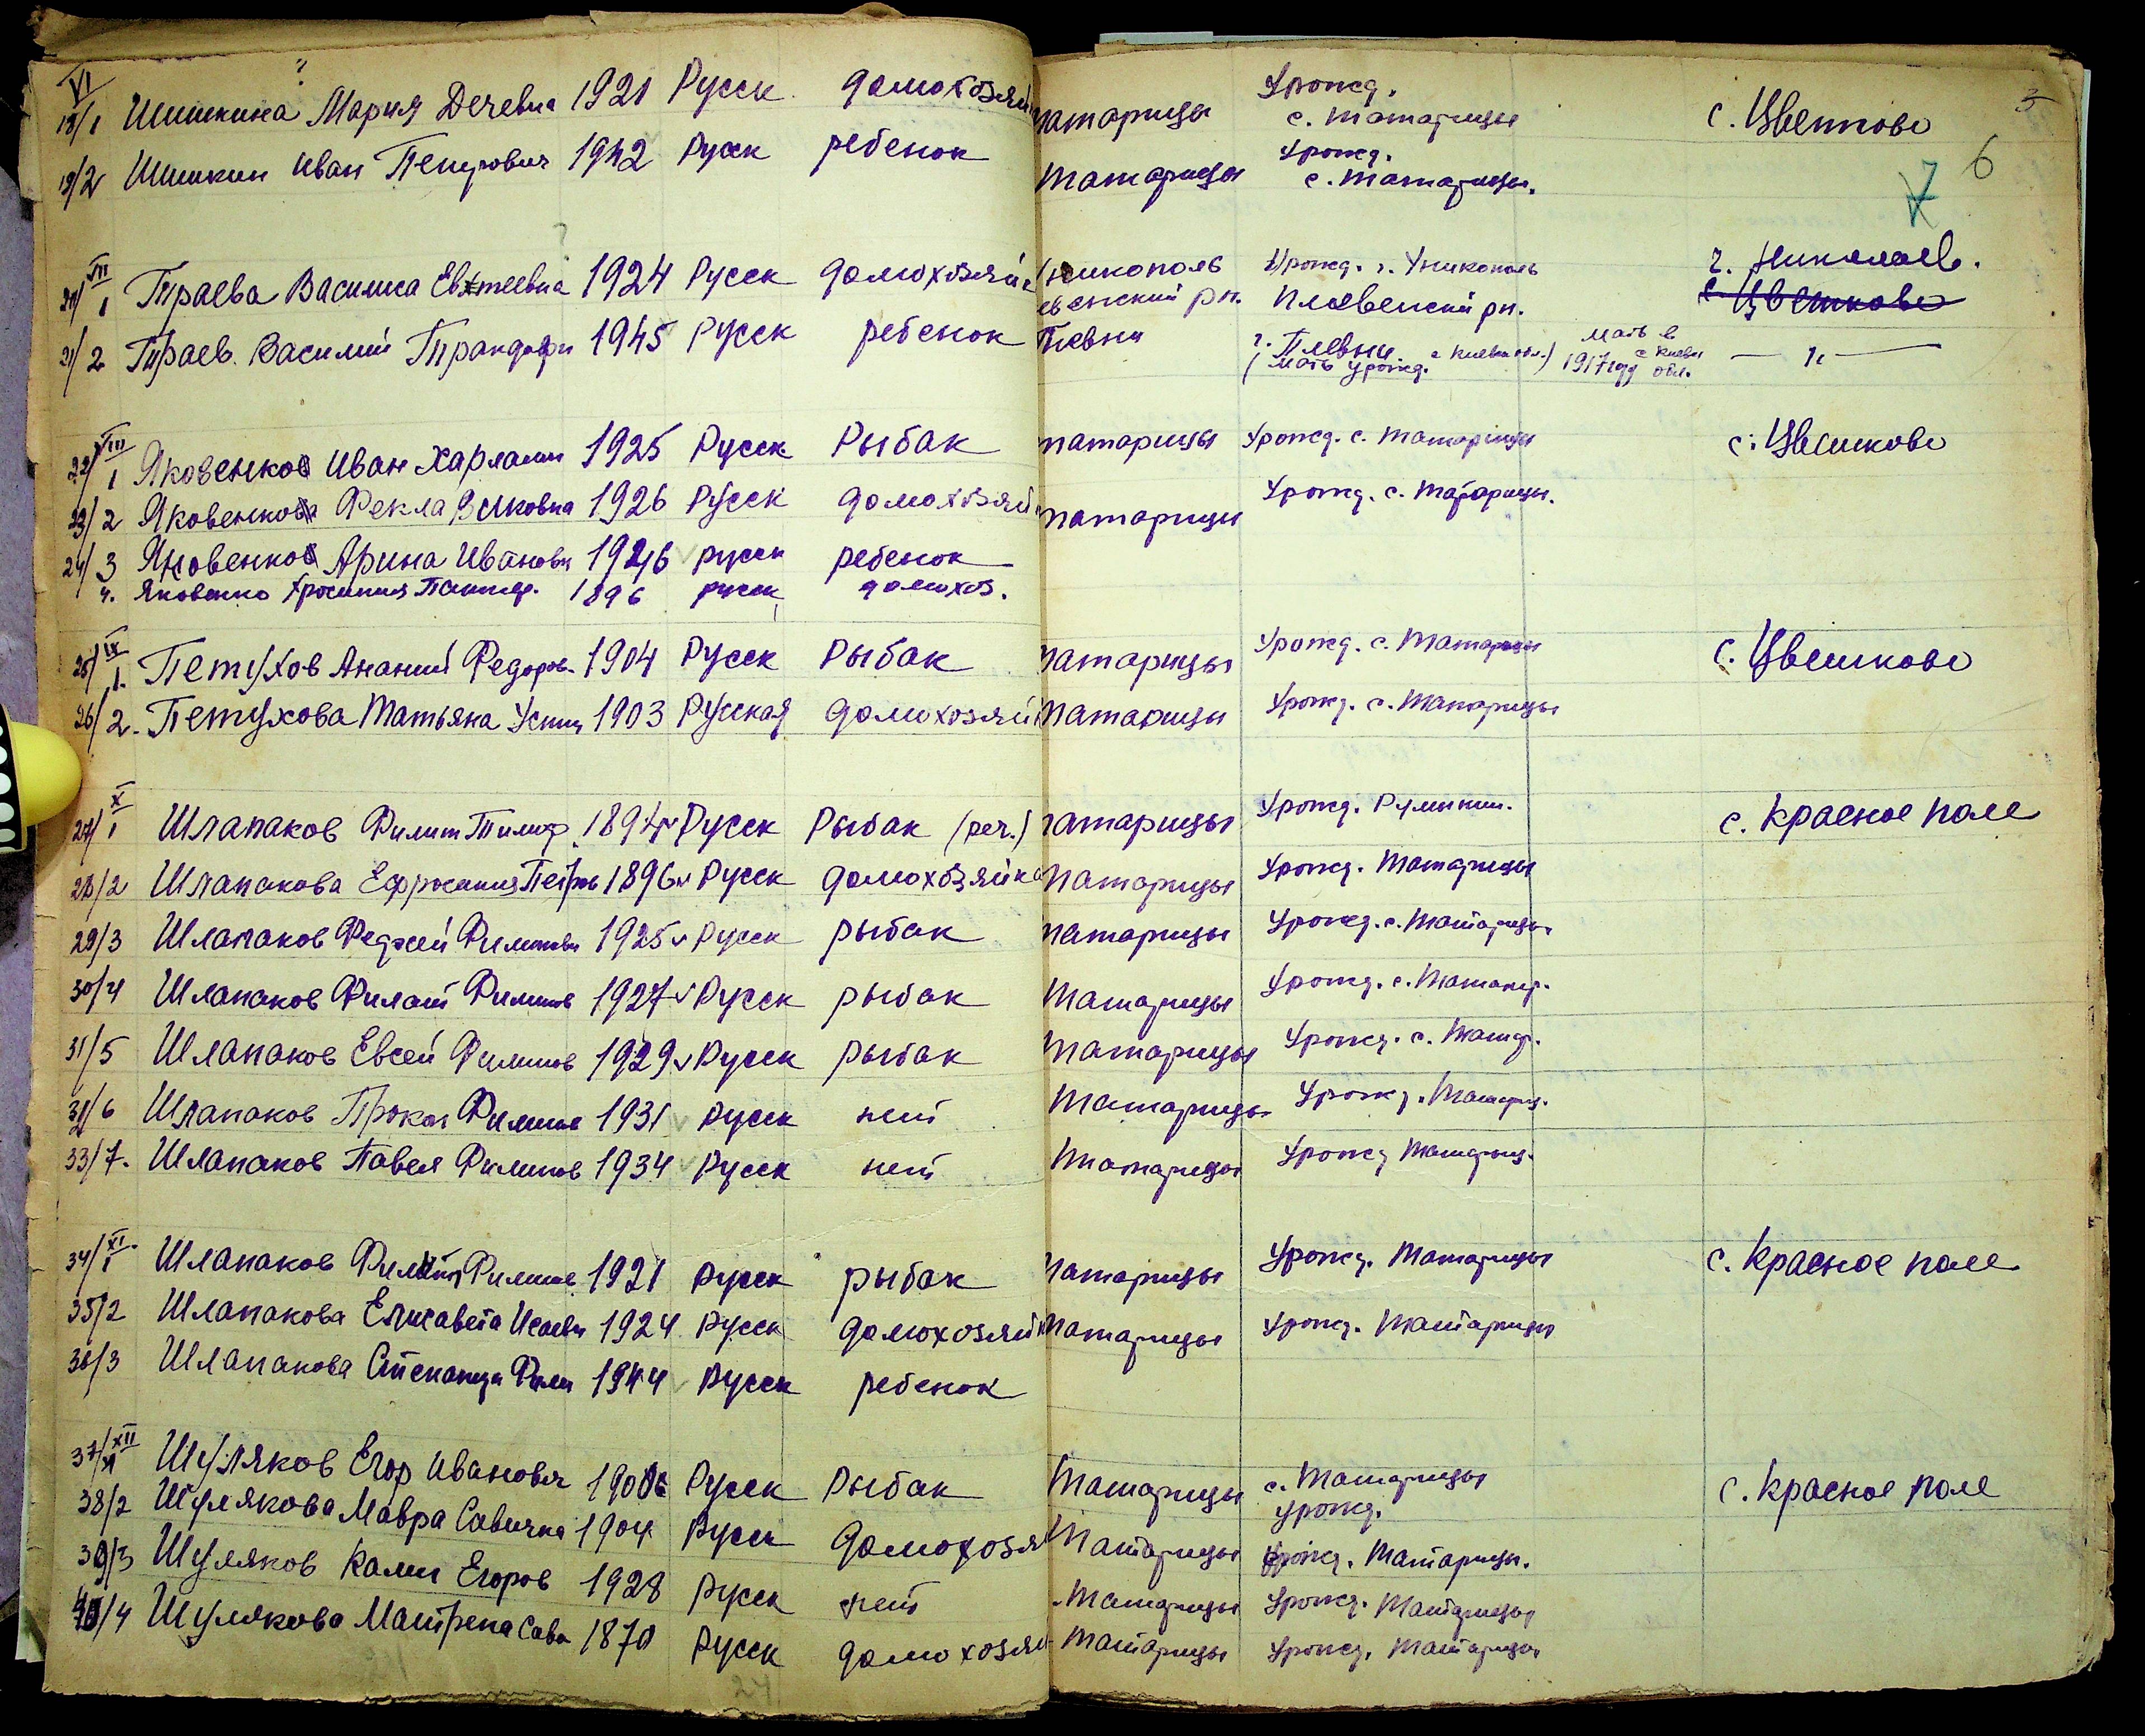 VI
18/1 Шишкина Мария Дечевна 1921 Русск домохозяй татарицы Урожд. с. Татарицы с. Цветково
19/2 Шишкин Иван Петрович 1942 Русск ребенок Татарицы Урожд. с. Татарицы.
7 6
VII
20/1 Траева Василиса 1924 Русск домохозяйк Никополь Урожд. г. Никополь г. Николаев.
енский рн. Плевенский рн. с. Цветково
21/2 Траев Василий 1945 Русск ребенок Плевни г. Плевни. — " —
(мать урожд. с Киевск обл.) мать в 1917 году с Киевск обл.
VIII
22/1 Яковенков Иван Харламп 1925 Русск Рыбак татарицы Урожд. с. Татарицы с. Цветково
23/2 Яковенкова Фекла 1926 Русск домохозяй татарицы Урожд. с. Татарицы.
24/3 Яковенков Арина Ивановн 1946 русск ребенок
4. Яковенко 1896 русск домохоз.
IX
25/1. Петухов Ананий Федоров 1904 Русск Рыбак татарицы Урожд. с. Татарицы с. Цветково
26/2. Петухова Татьяна Устин 1903 Русская домохозяйк Татарицы Урожд. с. Татарицы
X
27/1 Шлапаков Филип Тимоф. 1894 Русск Рыбак (реч.) татарицы Урожд. Румынии. с. Красное поле
28/2 Шлапакова Ефросиния Петров 1896 Русск домохозяйка Татарицы Урожд. Татарицы
29/3 Шлапаков Филипов 1925 Русск рыбак татарицы Урожд. с. Татарицы
30/4 Шлапаков Филат Филипов 1927 Русск рыбак Татарицы Урожд. с. Татариц.
31/5 Шлапаков Евсей Филипов 1929 Русск рыбак Татарицы Урожд. с. Татар.
32/6 Шлапаков Прокоп Филипов 1931 Русск нет Татарицы Урожд. Татариц.
33/7. Шлапаков Павел Филипов 1934 Русск нет Татарицы Урожд Татариц.
XI
34/1 Шлапаков Филипов 1921 Русск рыбак татарицы Урожд. Татарицы с. Красное поле
35/2 Шлапакова Елисавета Исаевн 1924 Русск домохозяйк Татарицы Урожд. Татарицы
36/3 Шлапакова Степанида Фили 1944 Русск ребенок
XII
37/1 Шуляков Егор Иванович 1906 Русск Рыбак Татарицы с. Татарицы урожд. с. Красное поле
38/2 Шулякова Мавра Савична 1904 Русск домохозя Татарицы Урожд. Татарицы.
39/3 Шуляков Калин Егоров 1928 Русск нет Татарицы Урожд. Татарицы
40/4 Шулякова Матрена Савв 1870 Русск домохозяй Татарицы Урожд. Татарицы